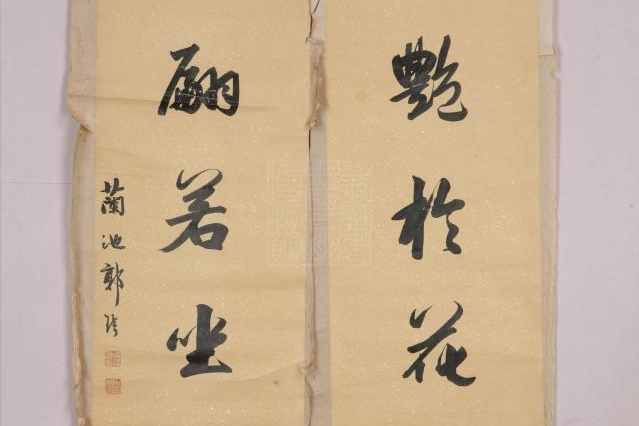 艷於花
翩若坐
蘭池郭